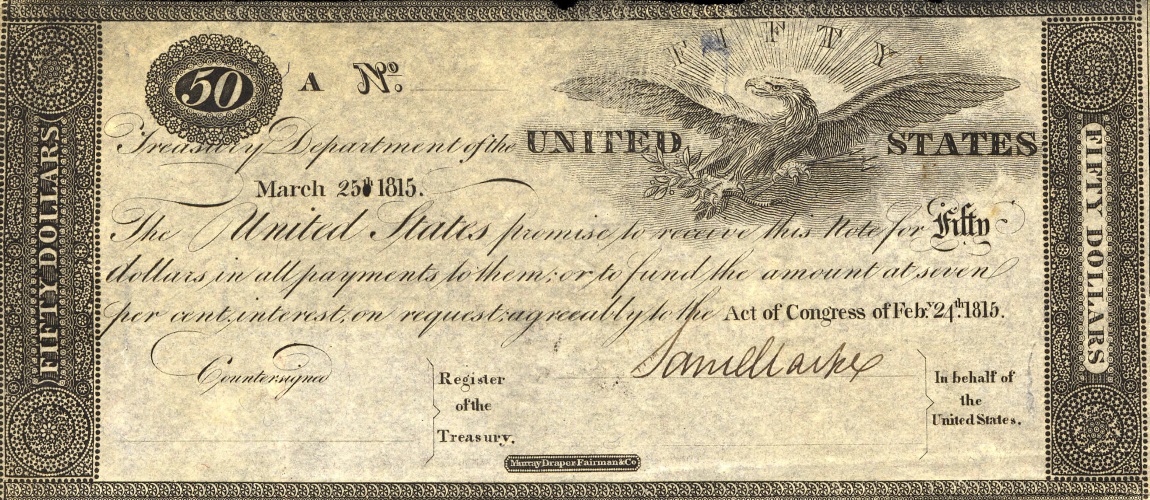 FIFTY
50 A No.
Treasury Department of the UNITED STATES
March 25th 1815.
The United States promise to receive this Note for Fifty
dollars in all payments to them; or to fund the amount at seven
per cent, interest, on request; agreeably to the Act of Congress of Feby. 24th. 1815.
Countersigned
Register
of the
Treasury.
In behalf of
the
United States.
Murray Draper Fairman & Co
FIFTY DOLLARS
FIFTY DOLLARS